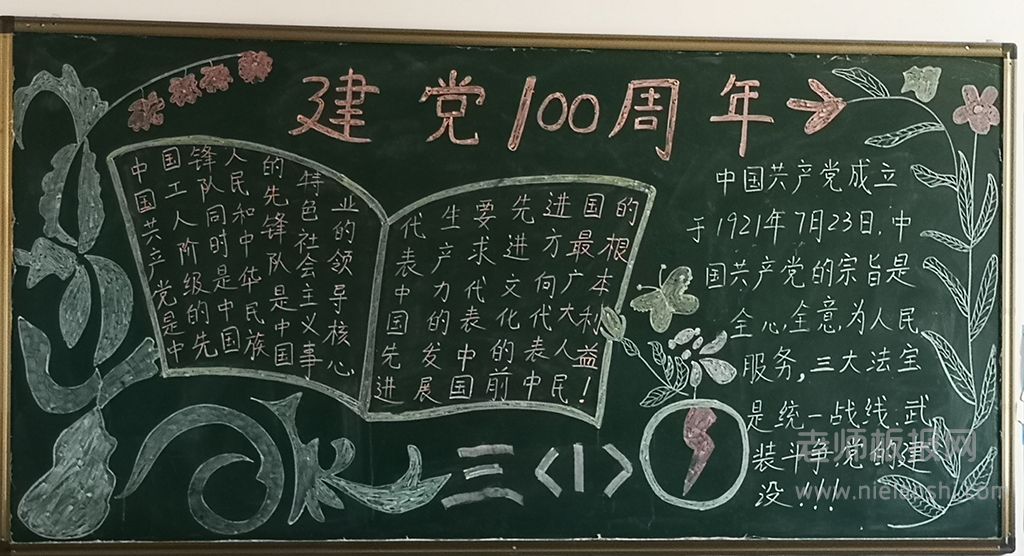 建党100周年
中国共产党是中
国工人阶级的先
锋队同时是中国
人民和中华民族
的先锋队是中国
特色社会主义事
业的领导核心
代表中国先进
生产力的发展
要求代表中国
先进文化的前
进方向代表中
国最广大人民
的根本利益!
中国共产党成立
于1921年7月23日,中
国共产党的宗旨是
全心全意为人民
服务,三大法宝
是统一战线,武
装斗争党的建
设!!!
三〈1〉
老师板报网